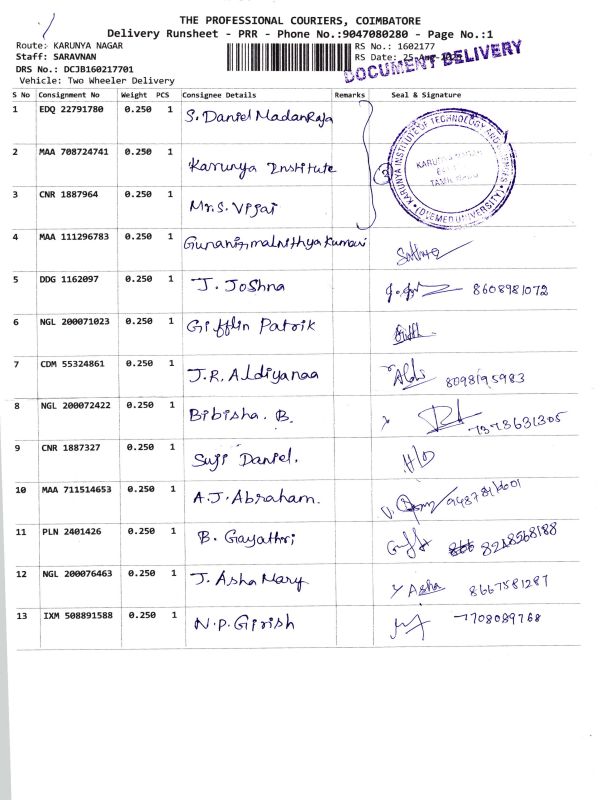 THE PROFESSIONAL COURIERS, COIMBATORE
Delivery Runsheet - PRR - Phone No.:9047080280 - Page No.:1
Route: KARUNYA NAGAR RS No.: 1602177
Staff: SARAVNAN RS Date: 25-Aug-
DRS No.: DCJB160217701
DOCUMENT DELIVERY
Vehicle: Two Wheeler Delivery
S No Consignment No Weight PCS Consignee Details Remarks Seal & Signature
1 EDQ 22791780 0.250 1 S. Daniel MadanRaja
KARUNYA INSTITUTE OF TECHNOLOGY AND SCIENCES
(DEEMED UNIVERSITY)
KARUNYA NAGAR
TAMIL NADU
2 MAA 708724741 0.250 1 Karunya Institute
3
3 CNR 1887964 0.250 1 Mr.S. Vijai
4 MAA 111296783 0.250 1
5 DDG 1162097 0.250 1 J. Joshna 8608981072
6 NGL 200071023 0.250 1 Gifflin Patrik
7 CDM 55324861 0.250 1 J.R. Aldiyanaa 8098195983
8 NGL 200072422 0.250 1 Bibisha. B. 7373631305
9 CNR 1887327 0.250 1 Suji Daniel. H/D
10 MAA 711514653 0.250 1 A.J. Abraham.
11 PLN 2401426 0.250 1 B. Gayathri 8248568188
12 NGL 200076463 0.250 1 J. Asha Mary Asha 8667581287
13 IXM 508891588 0.250 1 N.P. Girish 7708089768